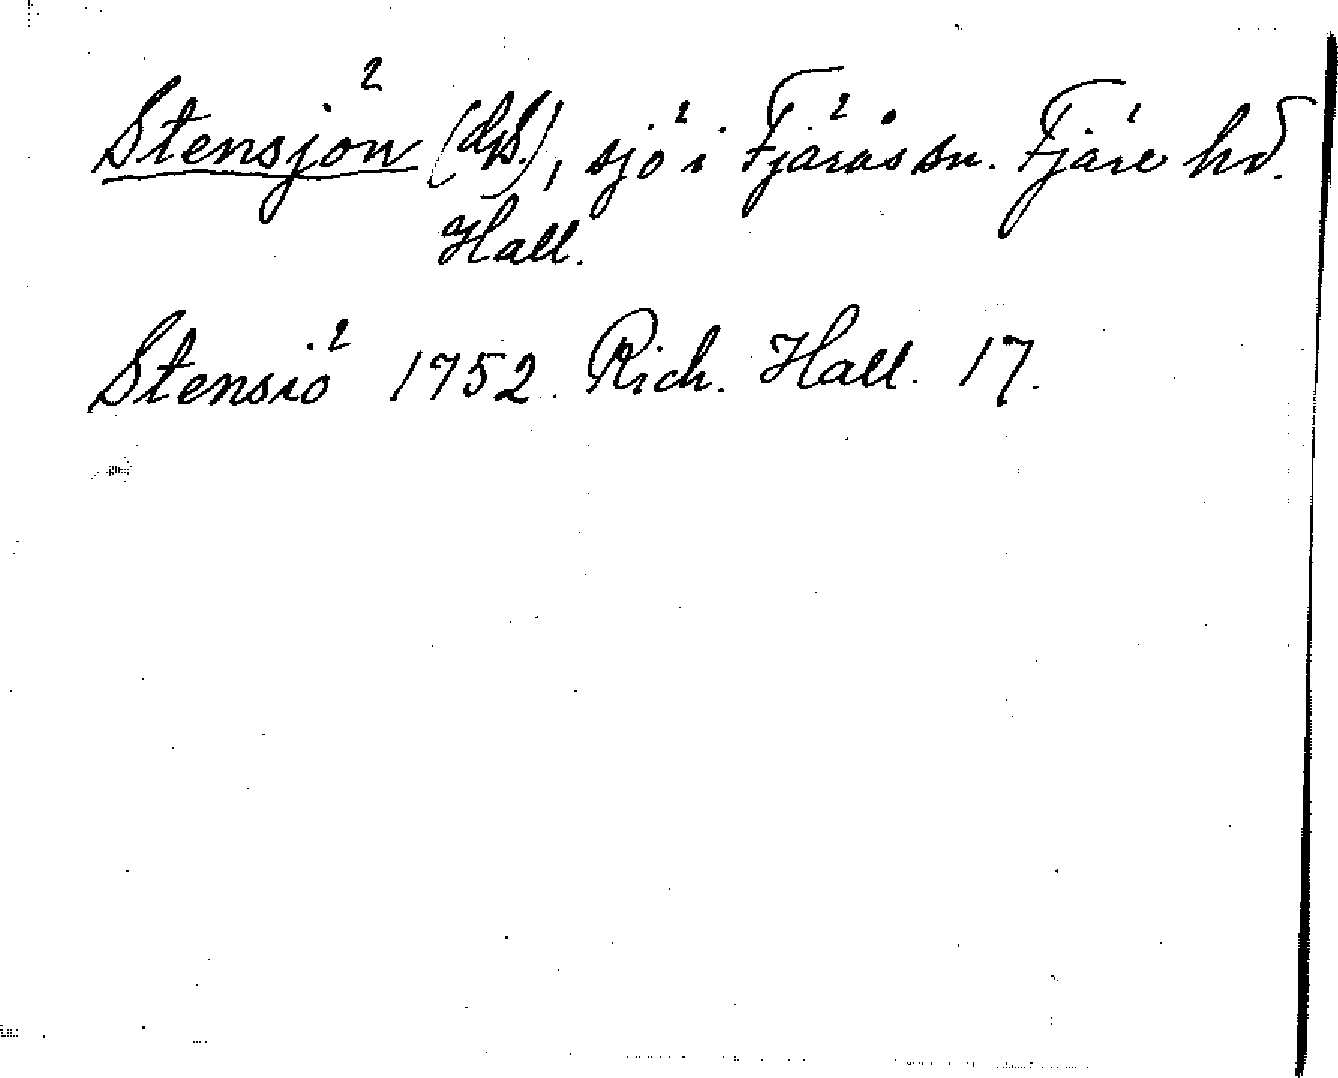 Stensjön (dpd.), sjö i Fjärås sn. Fjäre hd.
Hall.
Stensiö 1752. Rich. Hall. 17.